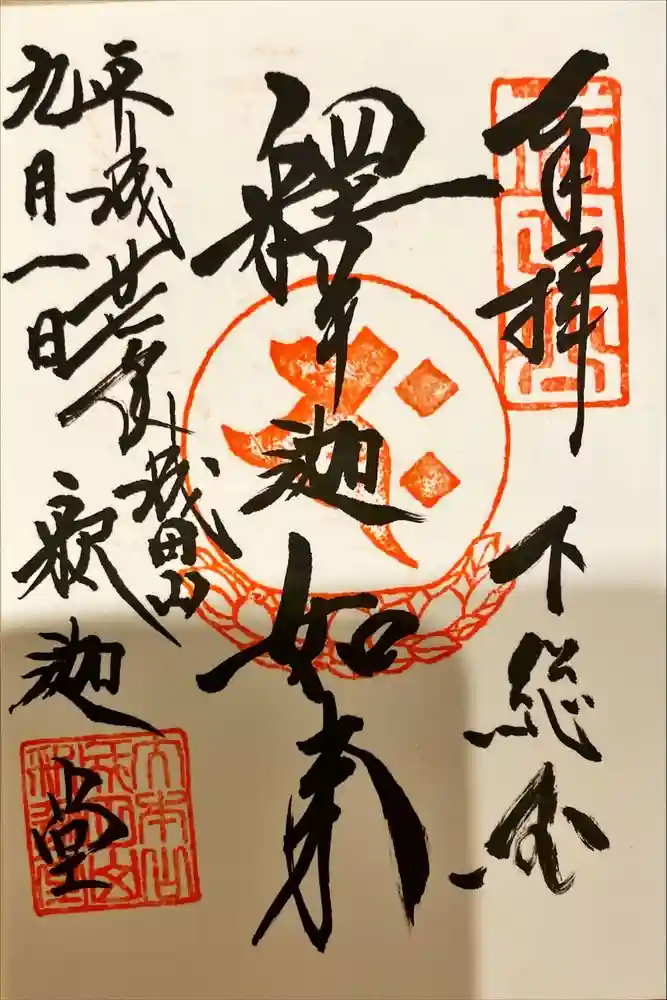 奉拝 下総国
釋迦如来
平成廿七年 成田山
九月一日 釈迦堂